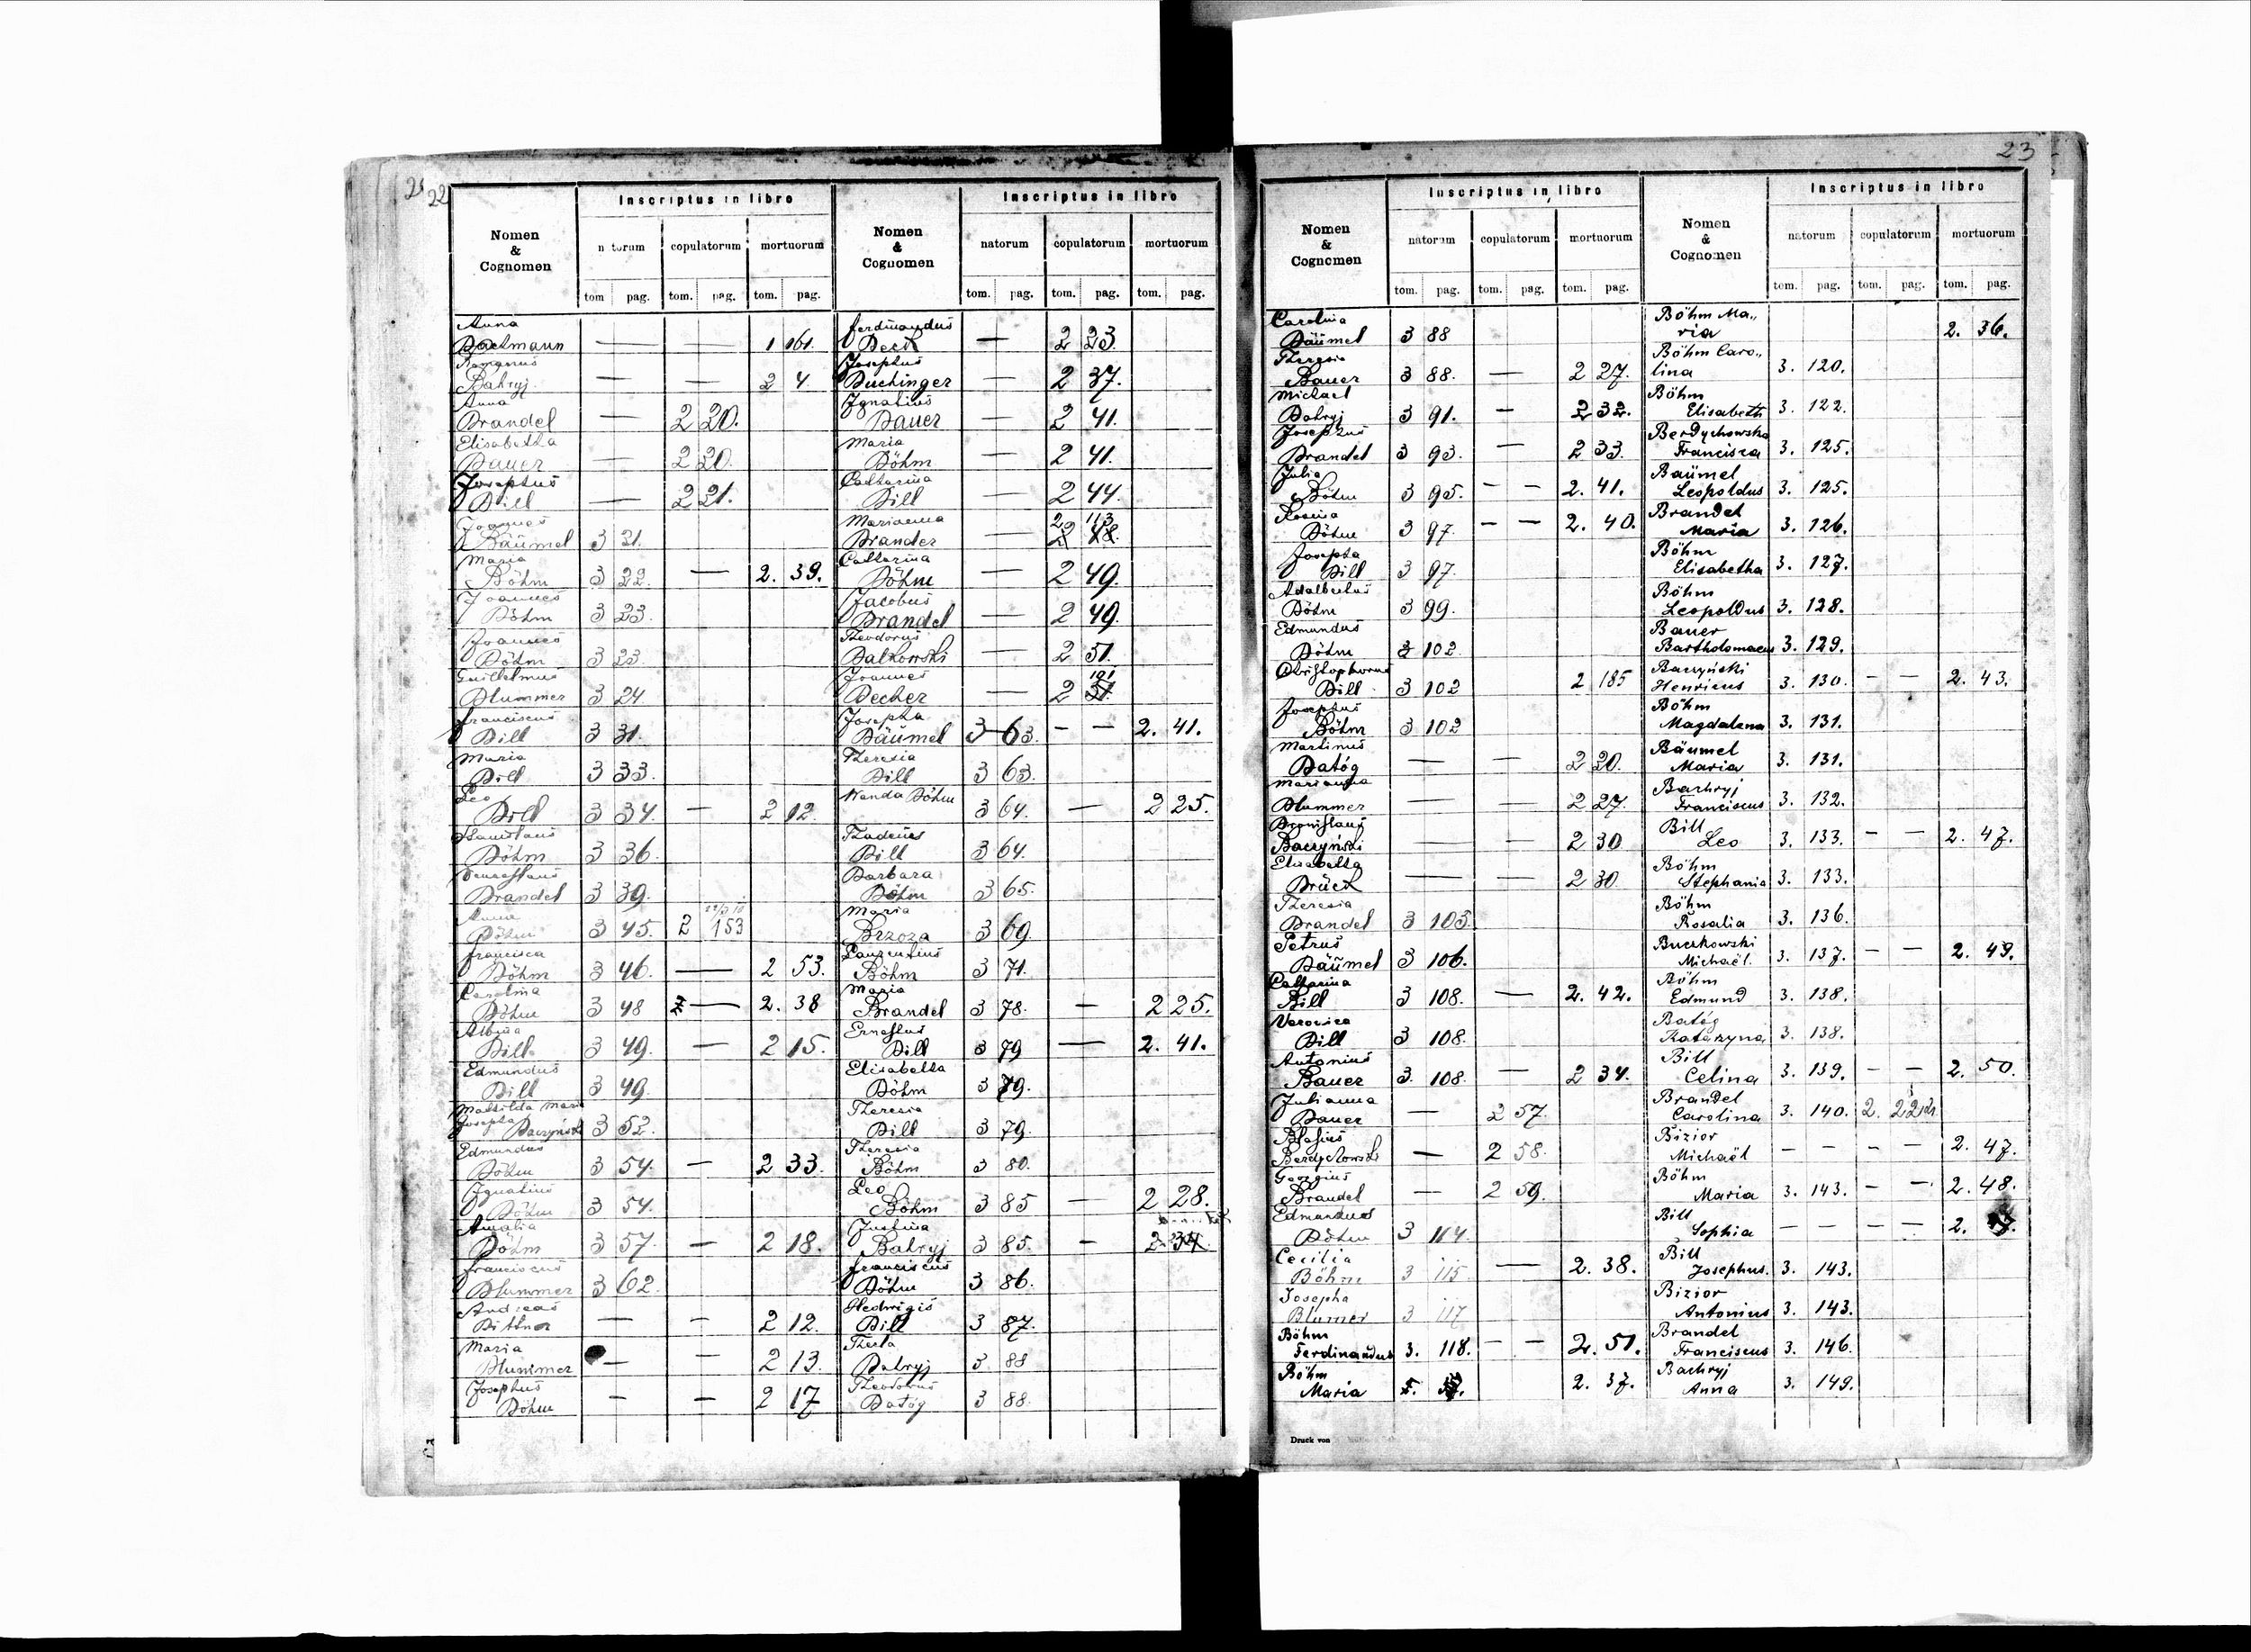 22
23
Nomen & Cognomen
Inscriptus in libro
natorum copulatorum mortuorum
tom. pag. tom. pag. tom. pag.
Anna
Bachmann — — 1 161.
Romanus
Bahryj — — 2 4
Anna
Brandel — 2 20.
Elisabetha
Bauer — 2 20.
Josephus
Bill — 2 21.
Joannes
Bäumel 3 21.
Maria
Böhm 3 22. — 2. 39.
Joannes
Böhm 3 23.
Joannes
Böhm 3 23.
Guilhelmus
Blummer 3 24
Franciscus
Bill 3 31.
Maria
Bill 3 33.
Leo
Bill 3 34. — 2 12.
Stanislaus
Böhm 3 36.
Venceslaus
Brandel 3 39.
Anna
Böhm 3 45. 2 153
Francisca
Böhm 3 46. — 2 53.
Carolina
Böhm 3 48 — 2. 38
Albina
Bill 3 49. — 2 15.
Edmundus
Bill 3 49.
Mathilda Maria
Josepha Baczyński 3 52.
Edmundus
Böhm 3 54. — 2 33.
Ignatius
Böhm 3 54.
Amalia
Böhm 3 57. — 2 18.
Franciscus
Blummer 3 62.
Andreas
Bittner — — 2 12.
Maria
Blummer — — 2 13.
Josephus
Böhm — — 2 17
Nomen & Cognomen
Inscriptus in libro
natorum copulatorum mortuorum
tom. pag. tom. pag. tom. pag.
Ferdinandus
Beck — 2 23.
Josephus
Buchinger — 2 37.
Ignatius
Bauer — 2 41.
Maria
Böhm — 2 41.
Catharina
Bill — 2 44.
Marianna 2 113
Brander — 2 48.
Catharina
Böhm — 2 49.
Jacobus
Brandel — 2 49.
Theodorus
Balkowski — 2 51.
Joannes 101
Becher — 2 51.
Josepha
Bäumel 3 63. — — 2. 41.
Theresia
Bill 3 63.
Wanda Böhm 3 64. — 2 25.
Thadeus
Bill 3 64.
Barbara
Böhm 3 65.
Maria
Brzoza 3 69.
Laurentius
Böhm 3 71.
Maria
Brandel 3 78. — 2 25.
Ernestus
Bill 3 79 — 2. 41.
Elisabetha
Böhm 3 79.
Theresia
Bill 3 79.
Theresia
Böhm 3 80.
Leo
Böhm 3 85 — 2 28.
Justina
Bahryj 3 85. — 2 34.
Franciscus
Böhm 3 86.
Hedwigis
Bill 3 87.
Thecla
Bahryj 3 88
Theodorus
Batóg 3 88.
Nomen & Cognomen
Inscriptus in libro
natorum copulatorum mortuorum
tom. pag. tom. pag. tom. pag.
Carolina
Bäumel 3 88
Theresia
Bauer 3 88. — 2 27.
Michael
Bahryj 3 91. — 2 32.
Josephus
Brandel 3 93. — 2 33.
Julia
Böhm 3 95. — — 2. 41.
Rosina
Böhm 3 97. — — 2. 40.
Josepha
Bill 3 97.
Adalbertus
Böhm 3 99.
Edmundus
Böhm 3 102
Christophorus
Bill 3 102 2 185
Josephus
Böhm 3 102
Martinus
Batóg — — 2 20.
Marianna
Blummer — — 2 27.
Bronislaus
Baczyński — — 2 30
Elisabetha
Brück — — 2 30
Theresia
Brandel 3 103.
Petrus
Bäumel 3 106.
Catharina
Bill 3 108. — 2. 42.
Veronica
Bill 3 108.
Antonius
Bauer 3. 108. — 2 34.
Julianna
Bauer — 2 57.
Blasius
Berdychowski — 2 58.
Georgius
Brandel — 2 59.
Edmundus
Böhm 3 114.
Cecilia
Böhm 3 115. — 2. 38.
Josepha
Blumer 3 117
Böhm
Ferdinandus 3. 118. — — 2. 51.
Böhm
Maria 2. 37.
Druck von
Nomen & Cognomen
Inscriptus in libro
natorum copulatorum mortuorum
tom. pag. tom. pag. tom. pag.
Böhm Ma„
ria 2. 36.
Böhm Caro„
lina 3. 120.
Böhm
Elisabeth 3. 122.
Berdychowska
Francisca 3. 125.
Baümel
Leopoldus 3. 125.
Brandel
Maria 3. 126.
Böhm
Elisabetha 3. 127.
Böhm
Leopoldus 3. 128.
Bauer
Bartholomaeus 3. 129.
Baczyński
Henricus 3. 130. — — 2. 43.
Böhm
Magdalena 3. 131.
Bäumel
Maria 3. 131.
Bachryj
Franciscus 3. 132.
Bill
Leo 3. 133. — — 2. 47.
Böhm
Stephania 3. 133.
Böhm
Rosalia 3. 136.
Buczkowski
Michaël. 3. 137. — — 2. 49.
Böhm
Edmund 3. 138.
Batóg
Katarzyna 3. 138.
Bill
Celina 3. 139. — — 2. 50.
Brandel
Carolina 3. 140. 2.
Bizior
Michaël — — — — 2. 47.
Böhm
Maria 3. 143. — — 2. 48.
Bill
Sophia — — — — 2.
Bill
Josephus. 3. 143.
Bizior
Antonius 3. 143.
Brandel
Franciscus 3. 146.
Bachryj
Anna 3. 149.